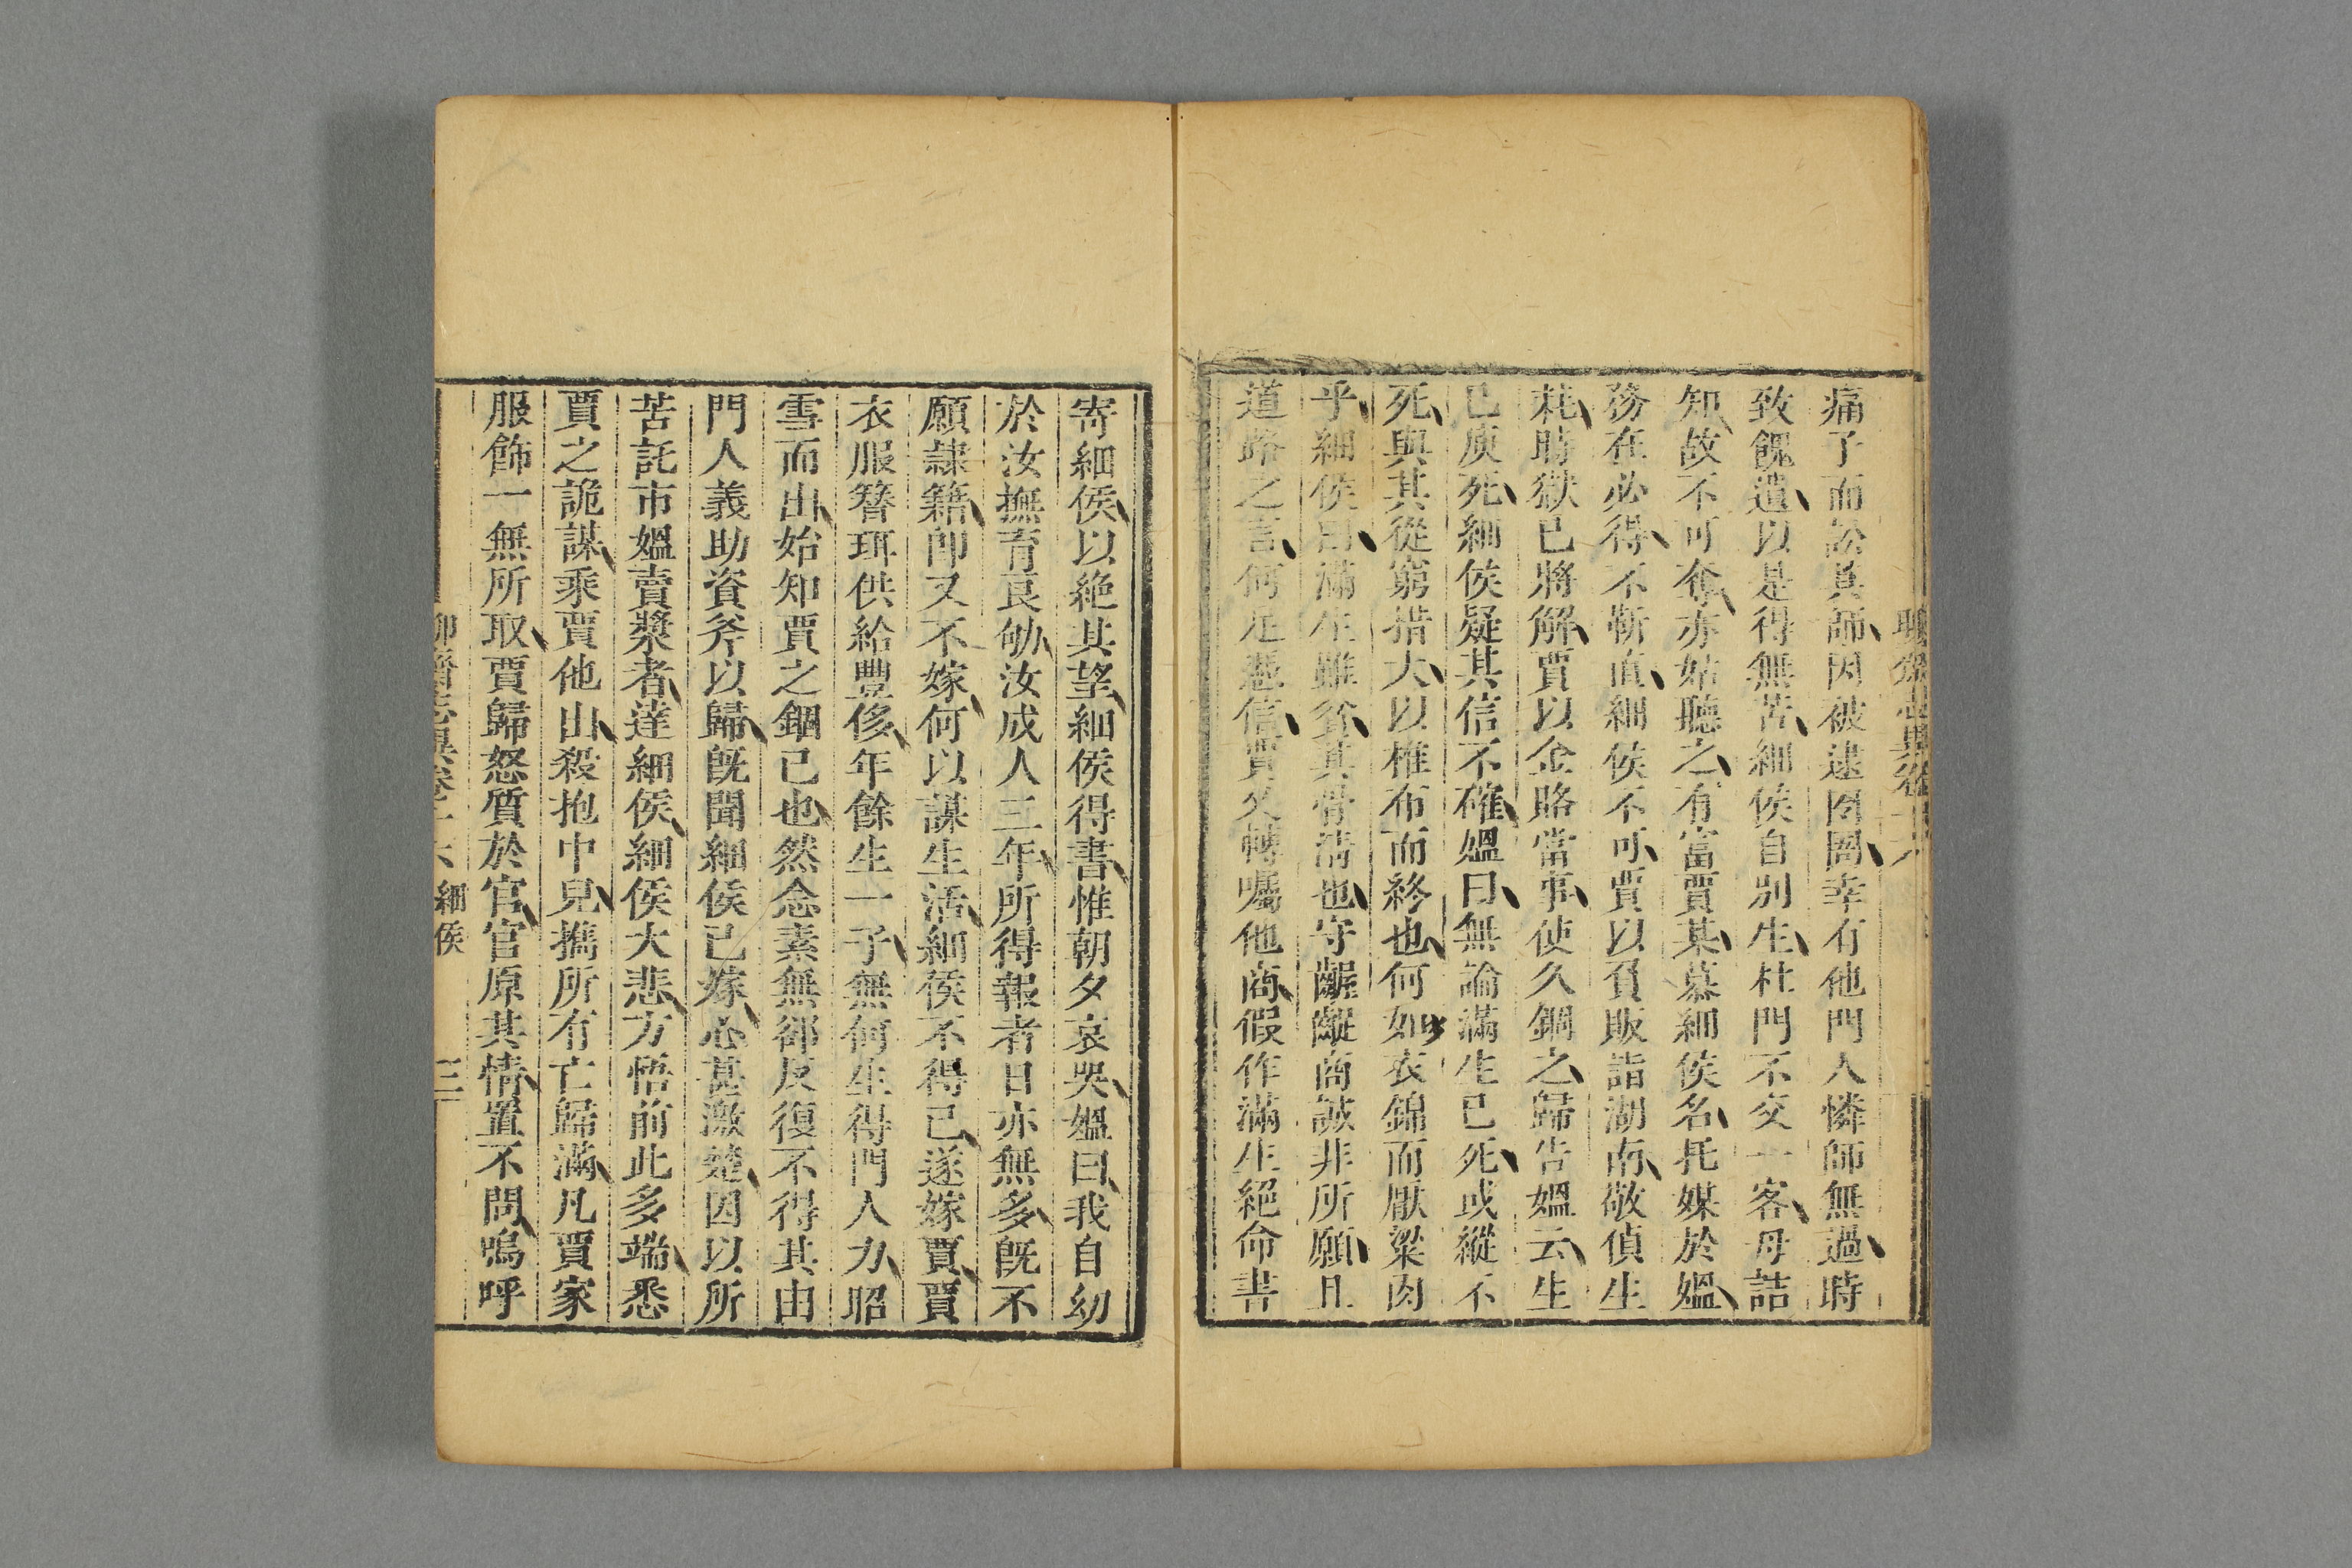 聊齋志異卷十六
痛子而訟其師因被逮囹圄幸有他門人憐師無過時
致餽遺以是得無苦細侯自別生杜門不交一客母詰
知故不可奪亦姑聽之有富賈某慕細侯名托媒於媼
務在必得不靳直細侯不可賈以負販詣湖南敬偵生
耗時獄已將解賈以金賂當事使久錮之歸告媼云生
已庾死細侯疑其信不確媼曰無論滿生已死或縱不
死與其從窮措大以椎布而終也何如衣錦而厭粱肉
乎細侯曰滿生雖貧其骨清也守齷齪商誠非所願且
道路之言何足憑信賈又轉囑他商假作滿生絕命書
寄細侯以絕其望細侯得書惟朝夕哀哭媼曰我自幼
於汝撫育良劬汝成人三年所得報者日亦無多既不
願隸籍即又不嫁何以謀生活細侯不得已遂嫁賈賈
衣服簪珥供給豐侈年餘生一子無何生得門人力昭
雪而出始知賈之錮己也然念素無郤反復不得其由
門人義助資斧以歸既聞細侯已嫁心甚激楚因以所
苦託市媼賣漿者達細侯細侯大悲方悟前此多端悉
賈之詭謀乘賈他出殺抱中兒攜所有亡歸滿凡賈家
服飾一無所取賈歸怒質於官官原其情置不問嗚呼
聊齋志異卷十六 細侯 三